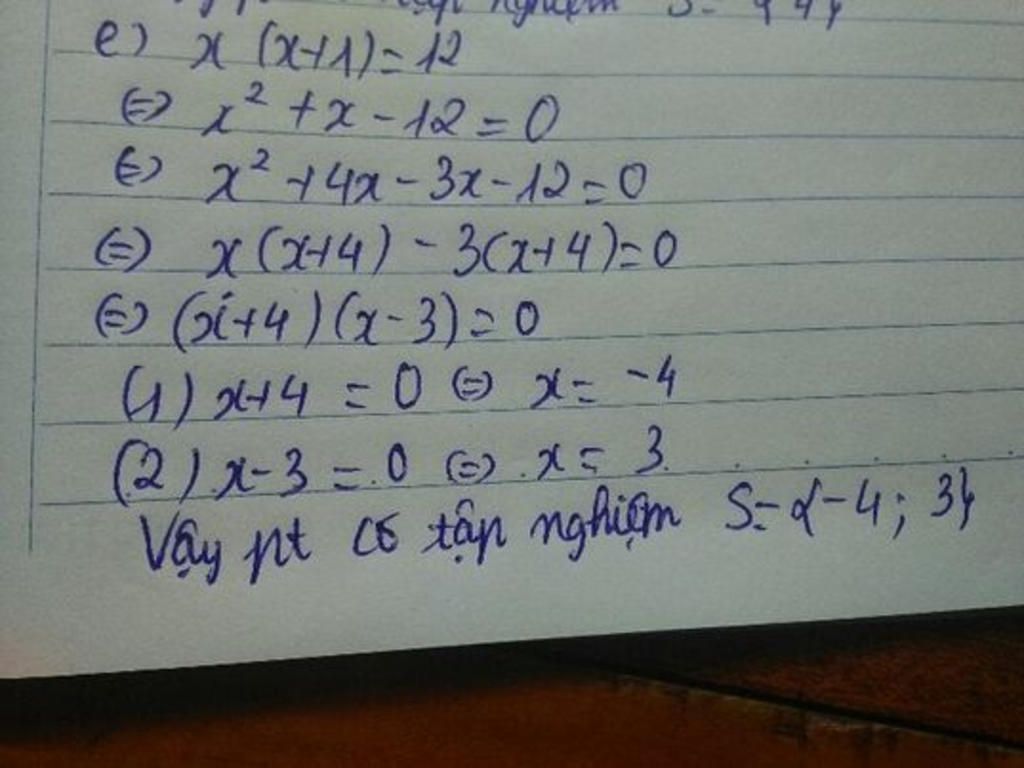 nghiệm S=
e) x (x+1)=12
⇔ x² +x-12=0
⇔ x²+4x-3x-12=0
⇔ x(x+4)-3(x+4)=0
⇔ (x+4)(x-3)=0
(1) x+4 = 0 ⇔ x= -4
(2) x-3 = 0 ⇔ x= 3
Vậy pt có tập nghiệm S={-4; 3}